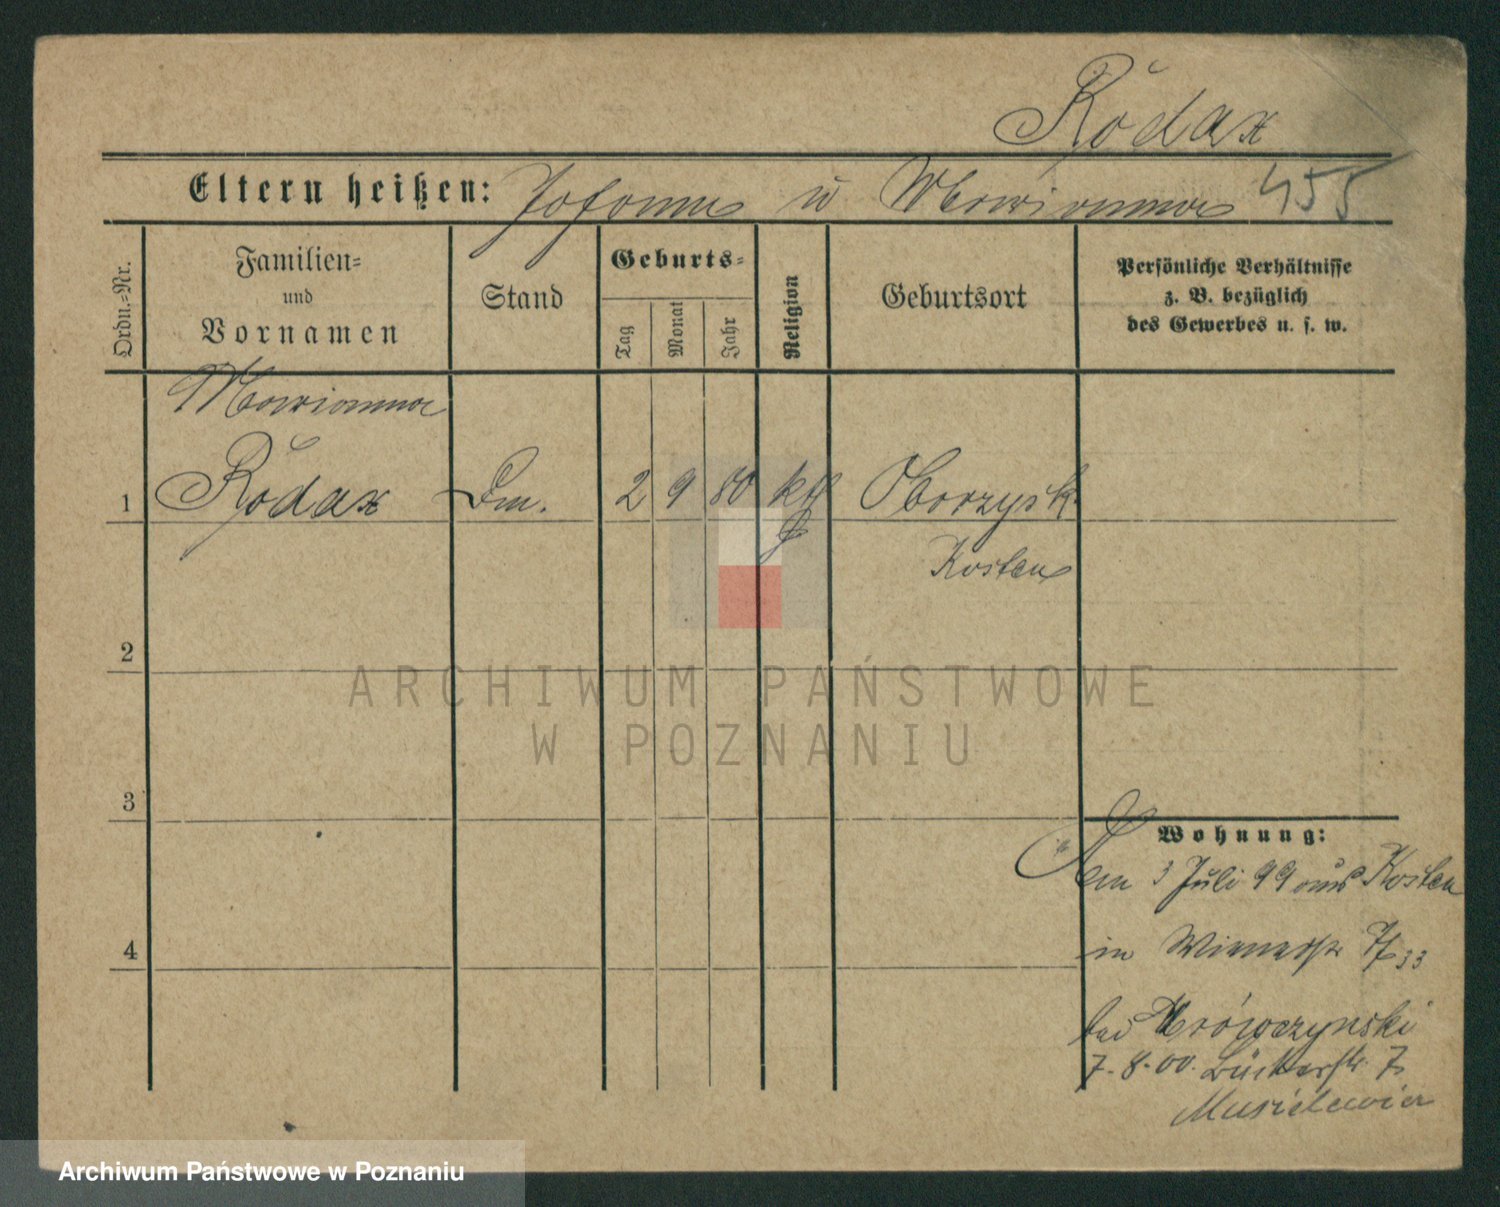 Rŏdax
Eltern heißen: Johann u Marianna 455
Ordn.-Nr.
Familien-
und
Vornamen
Stand
Geburts-
Tag
Monat
Jahr
Religion
Geburtsort
Persönliche Verhältnisse
z. B. bezüglich
des Gewerbes u. s. w.
Marianna
1 Rŏdax Dm. 2 9 80 kth Oborzysk
Kosten
2
ARCHIWUM PAŃSTWOWE
W POZNANIU
3
Wohnung:
Am 3 Juli 99 aus Kosten
4
in Wienerstr 7/33
bei Mrówczynski
7. 8. 00. Bäckerstr. 7
Musielewicz
Archiwum Państwowe w Poznaniu